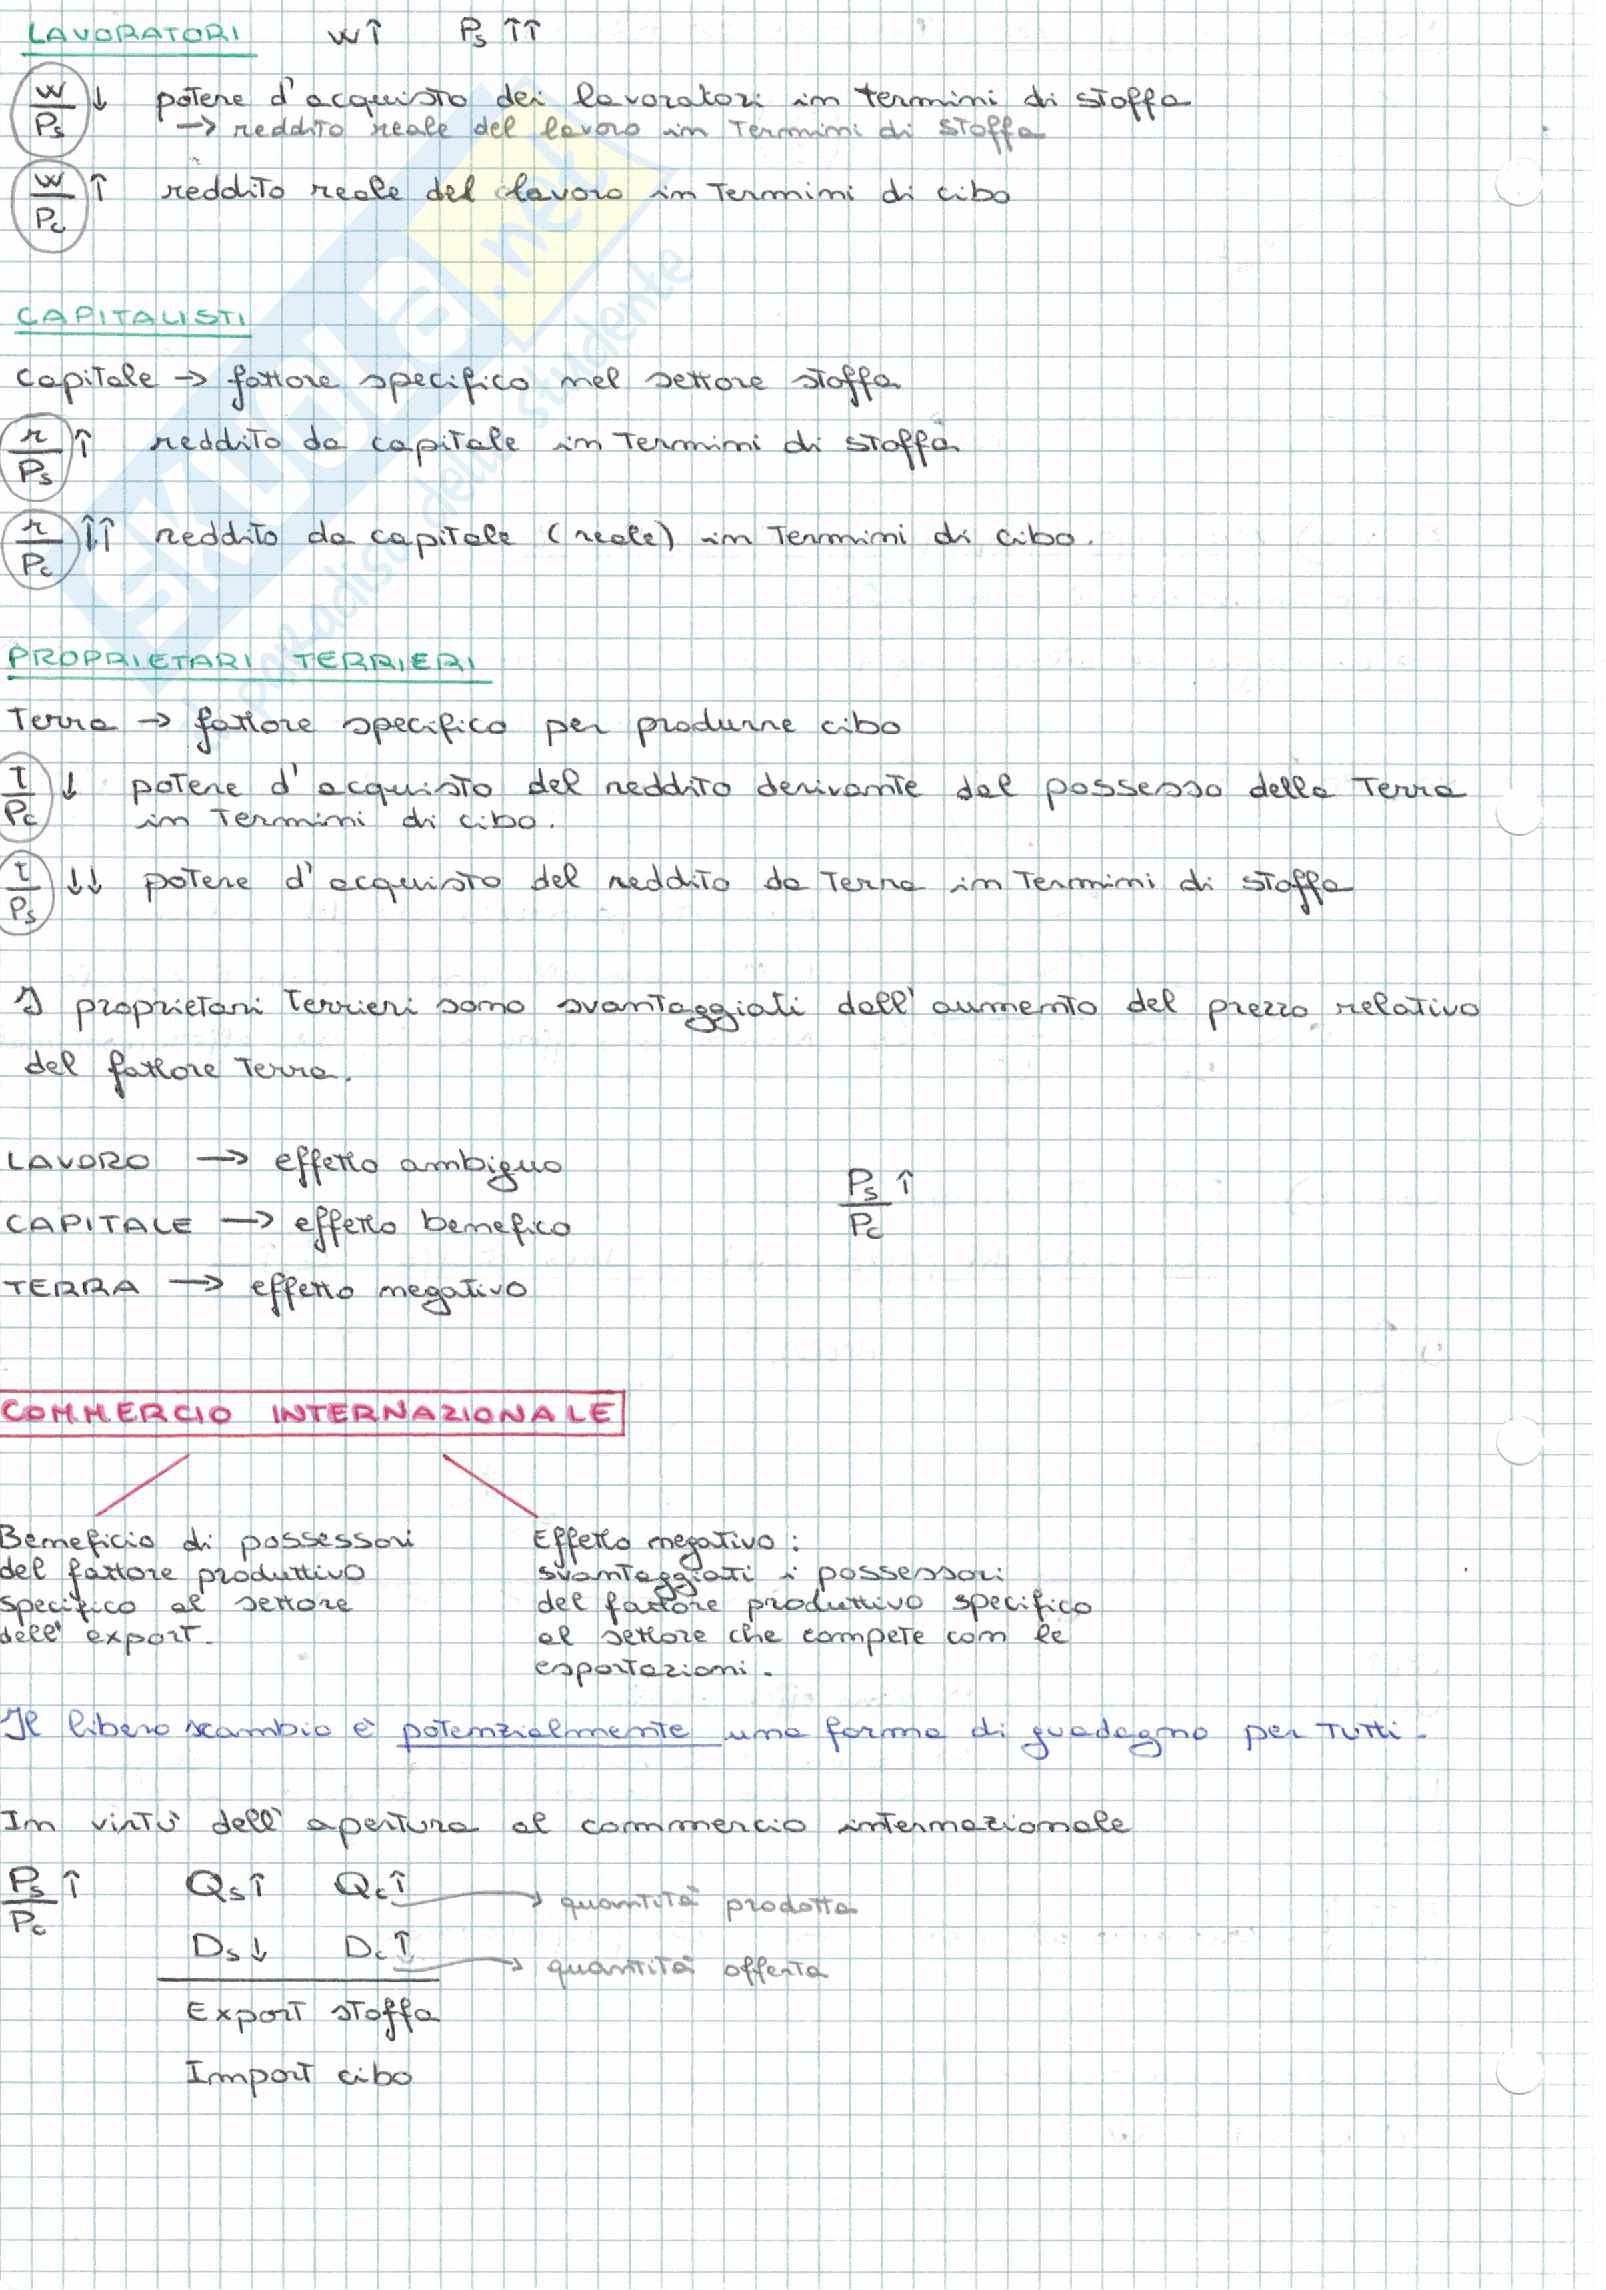 LAVORATORI w↑ Ps ↑↑
w/Ps ↓ potere d'acquisto dei lavoratori in termini di stoffa
→ reddito reale del lavoro in termini di stoffa
w/Pc ↑ reddito reale del lavoro in termini di cibo
CAPITALISTI
Capitale → fattore specifico nel settore stoffa
r/Ps ↑ reddito da capitale in termini di stoffa
r/Pc ↑↑ reddito da capitale (reale) in termini di cibo.
PROPRIETARI TERRIERI
Terra → fattore specifico per produrre cibo
t/Pc ↓ potere d'acquisto del reddito derivante dal possesso della terra
in termini di cibo.
t/Ps ↓↓ potere d'acquisto del reddito da terra in termini di stoffa
I proprietari terrieri sono svantaggiati dall'aumento del prezzo relativo
del fattore terra.
LAVORO → effetto ambiguo
CAPITALE → effetto benefico
Ps/Pc ↑
TERRA → effetto negativo
COMMERCIO INTERNAZIONALE
Beneficio di possessori
del fattore produttivo
specifico al settore
dell'export.
Effetto negativo:
svantaggiati i possessori
del fattore produttivo specifico
al settore che compete con le
esportazioni.
Il libero scambio è potenzialmente una forma di guadagno per tutti.
In virtù dell'apertura al commercio internazionale
Ps/Pc ↑ Qs↑ Qc↑ → quantità prodotta
Ds↓ Dc↑ → quantità offerta
Export stoffa
Import cibo
SKUOLA.net
il paradiso dello studente